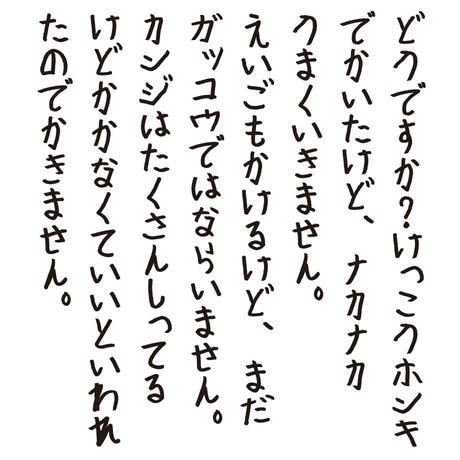 どうですか?けっこうホンキ
でかいたけど、ナカナカ
うまくいきません。
えいごもかけるけど、まだ
ガッコウではならいません。
カンジはたくさんしってる
けどかかなくていいといわれ
たのでかきません。